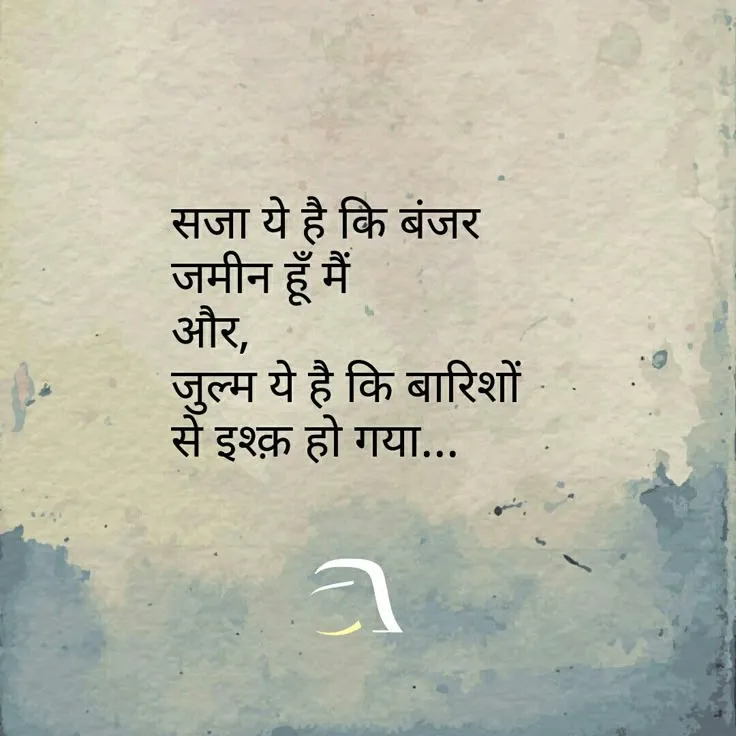 सजा ये है कि बंजर
जमीन हूँ मैं
और,
जुल्म ये है कि बारिशों
से इश्क़ हो गया...